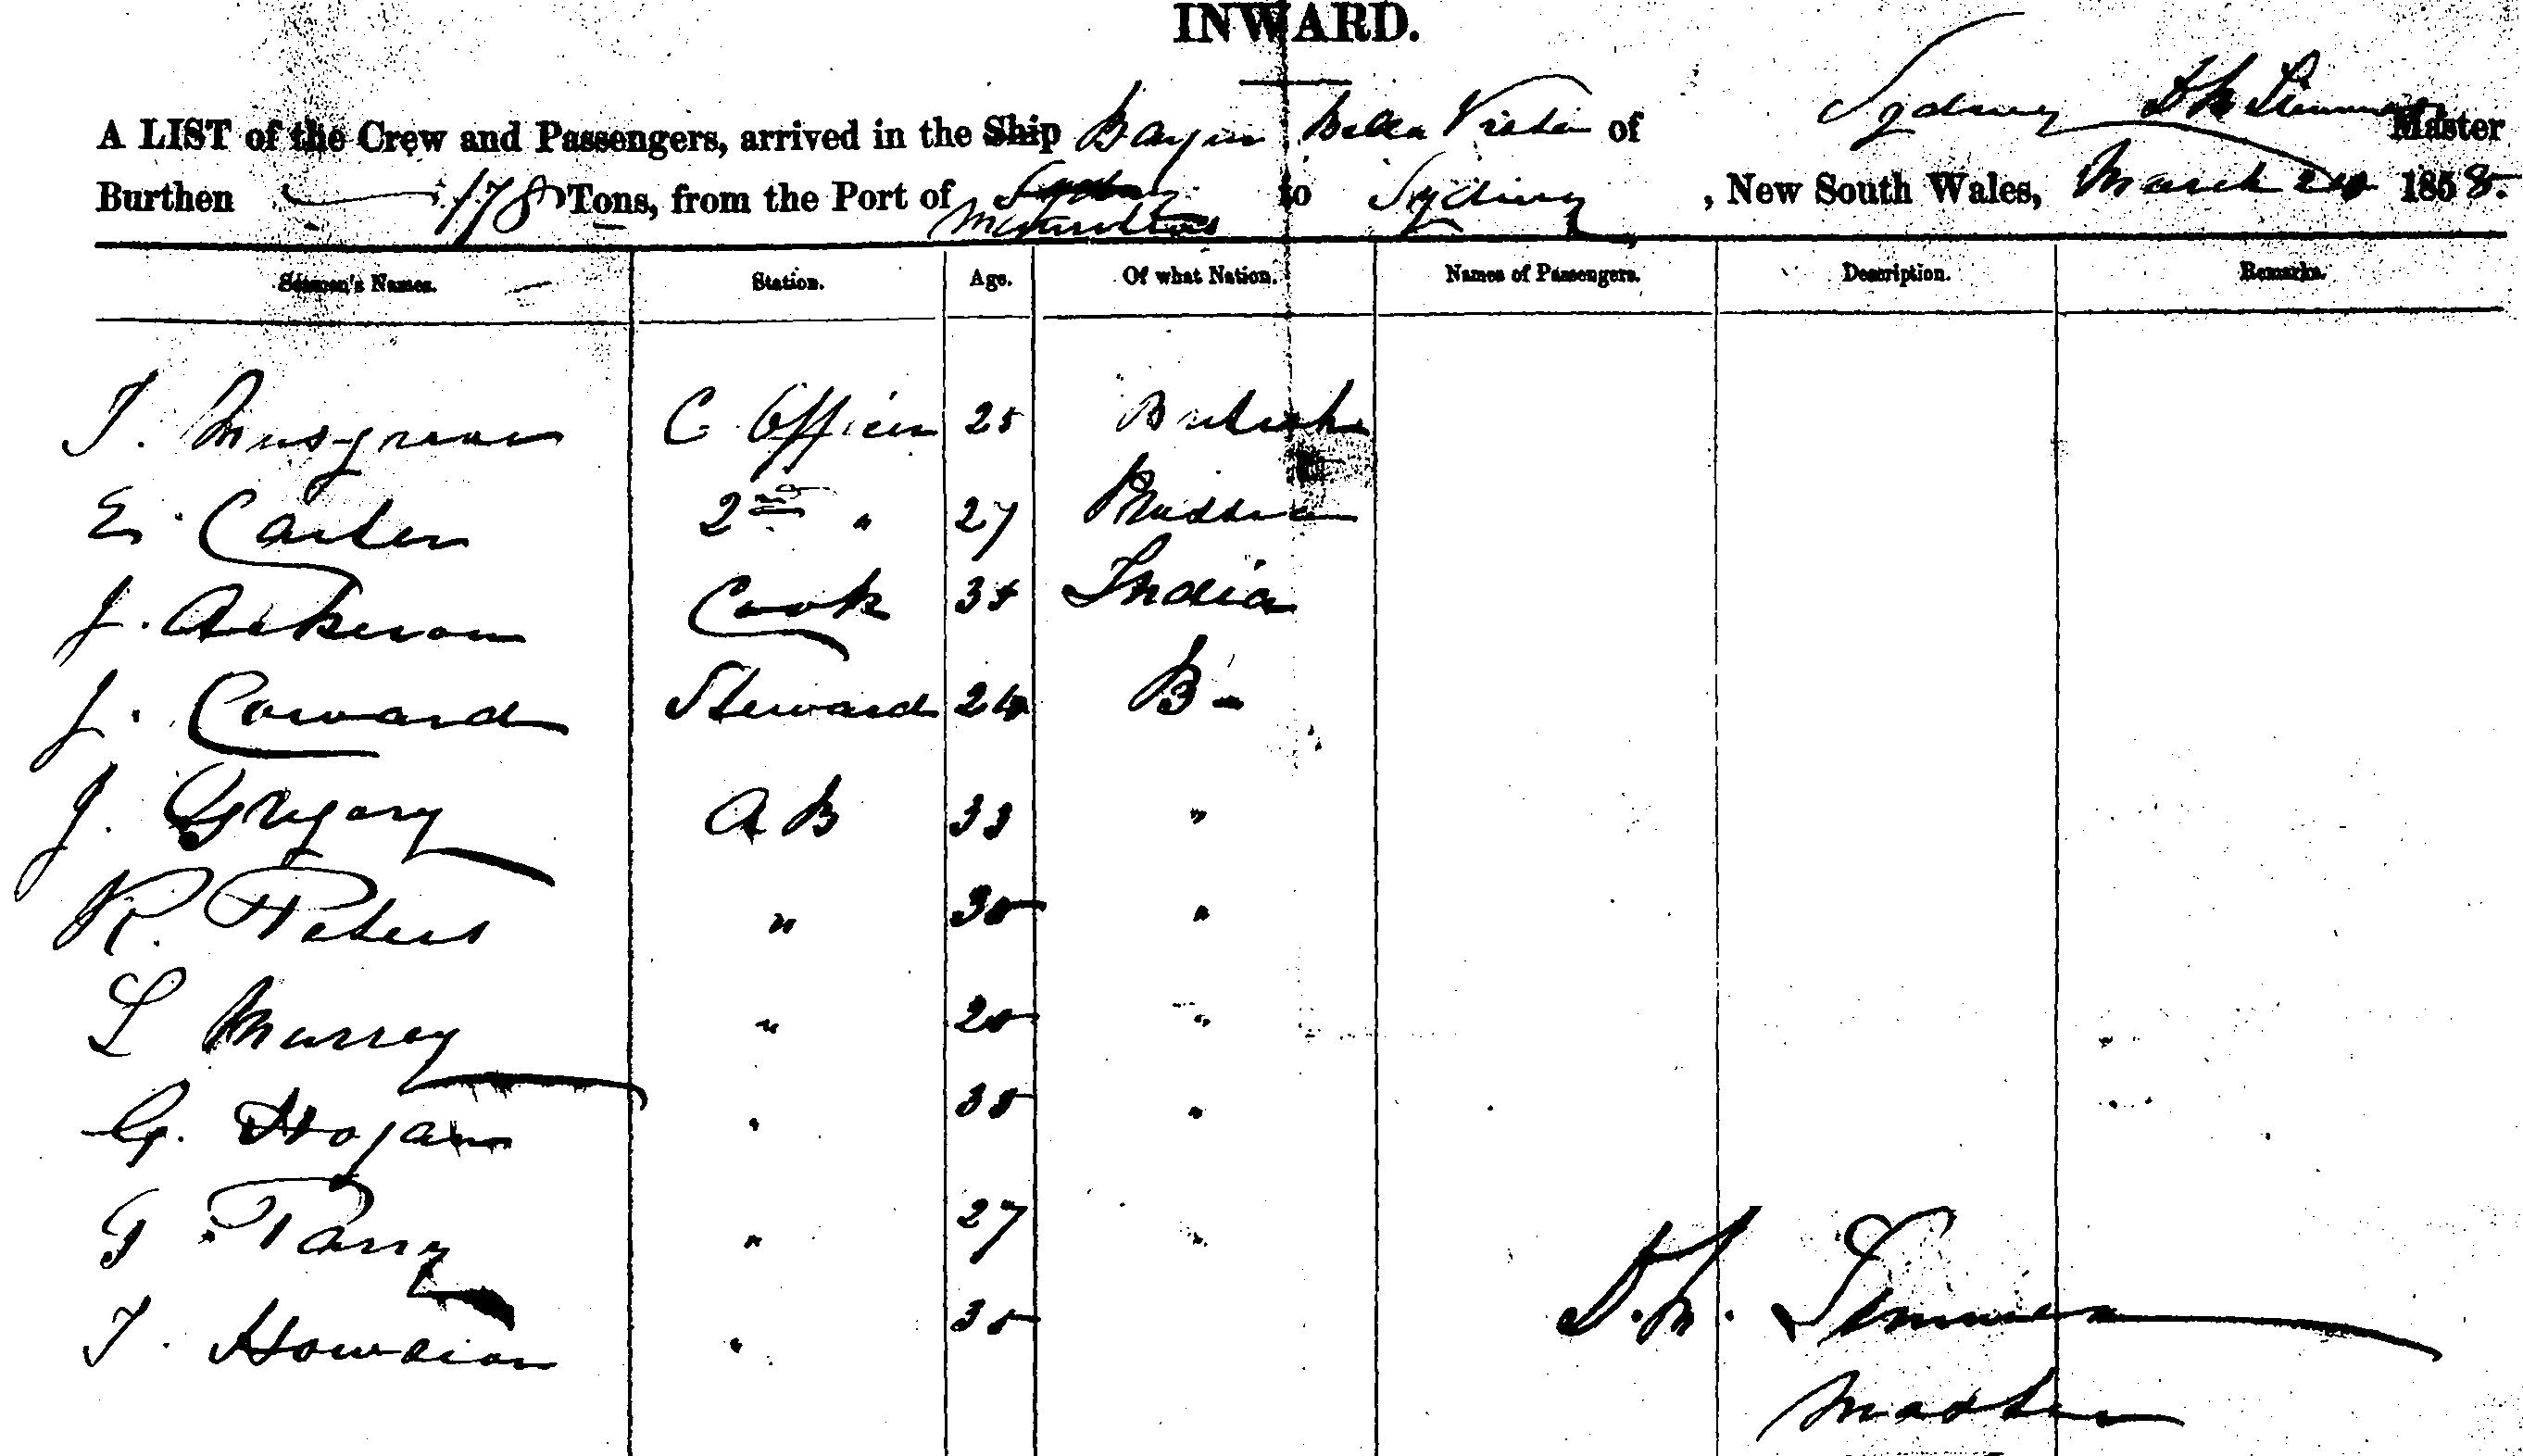 INWARD.
A LIST of the Crew and Passengers, arrived in the Ship Bella Vista of Sydney Master
Burthen 178 Tons, from the Port of Mauritius to Sydney, New South Wales, March 24 1858.
Seamen's Names. Station. Age. Of what Nation. Names of Passengers. Description. Remarks.
T. Musgrave C Officer 25 British
E. Carter 2nd " 27 Prussia
J. Ackeron Cook 35 India
J. Coward Steward 24 B -
J. Gregory A B 33 "
R. Peters " 30 "
L Murray " 25 "
G. Hogan " 35 "
G Parry " 27 "
T. Howdian " 35
Master